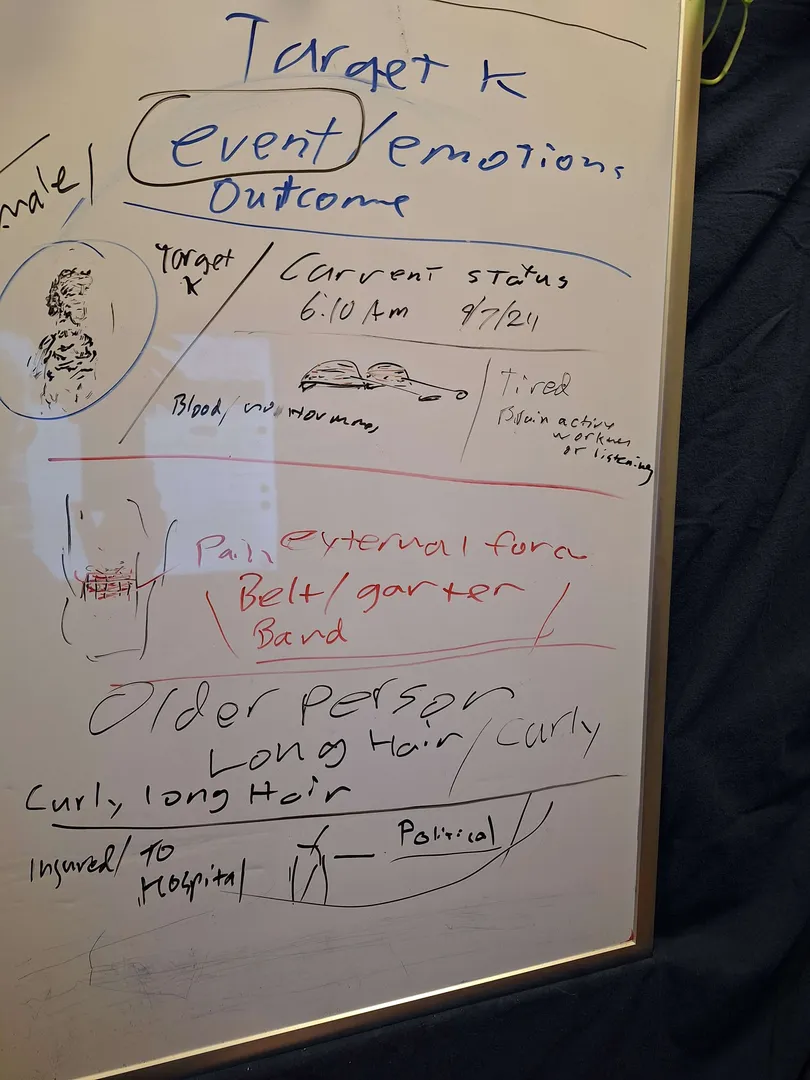 Target K
event/emotions
Outcome
male/
Target
K
Current status
6:10 Am 9/7/24
Tired
Brain active
or listening
Blood/
Pain external for a
Belt/garter
Band
Older person
Long Hair/Curly
Curly, long Hair
Insured/ To
Hospital
Political